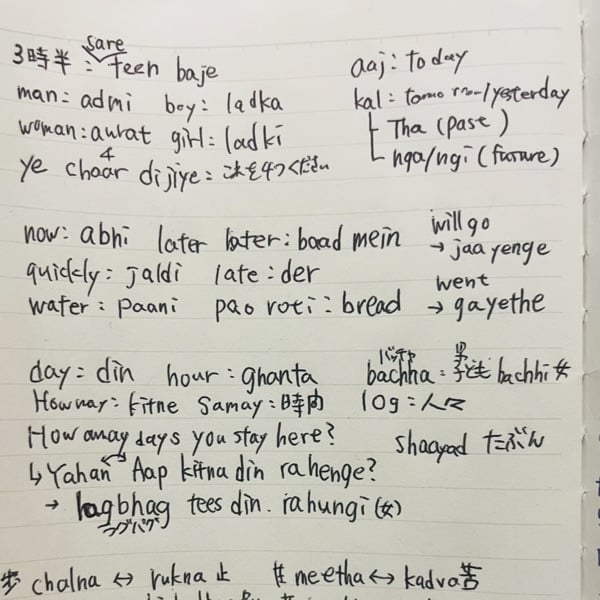 3時半: sare teen baje
aaj: today
man: admi boy: ladka
kal: tomorrow/yesterday
woman: aurat girl: ladki
Tha (past)
ye 4 chaar dijiye: これを4つください
nga/ngi (future)
now: abhi later later: baad mein
will go
→ jaayenge
quickly: jaldi late: der
went
water: paani pao roti: bread → gayethe
day: din hour: ghanta
バッチャ 男
bachha: 子ども bachhi 女
kitne samay: 時間 log: 人々
How many days you stay here?
shaayad たぶん
↳ Yahan Aap kitna din rahenge?
→ lagbhag tees din. rahungi (女)
ラグバグ
歩 chalna ↔ rukna 止 甘 meetha ↔ kadva 苦